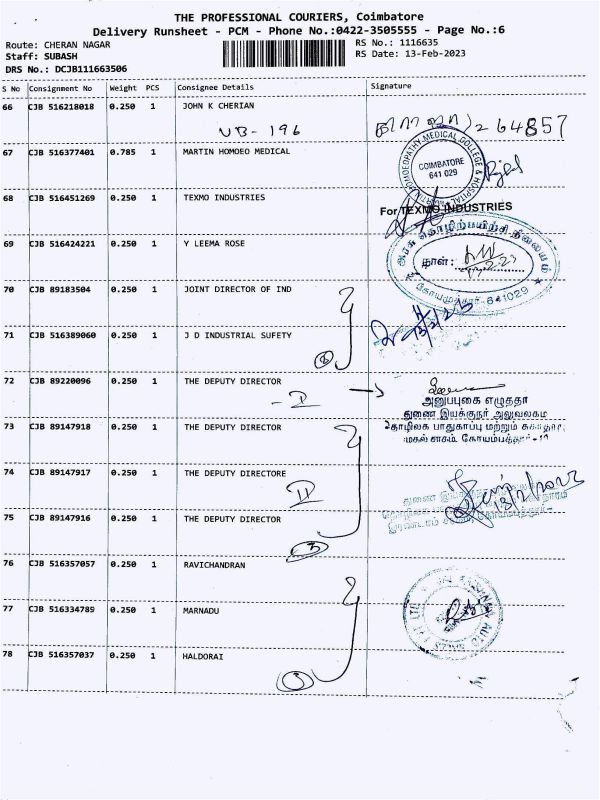 THE PROFESSIONAL COURIERS, Coimbatore
Delivery Runsheet - PCM - Phone No.:0422-3505555 - Page No.:6
Route: CHERAN NAGAR
RS No.: 1116635
Staff: SUBASH
RS Date: 13-Feb-2023
DRS No.: DCJB111663506
S No Consignment No Weight PCS Consignee Details Signature
66 CJB 516218018 0.250 1 JOHN K CHERIAN
UB- 196
264857
67 CJB 516377401 0.785 1 MARTIN HOMOEO MEDICAL
HOMOEOPATHY MEDICAL COLLEGE & HOSPITAL
COIMBATORE
641 029
68 CJB 516451269 0.250 1 TEXMO INDUSTRIES
For TEXMO INDUSTRIES
69 CJB 516424221 0.250 1 Y LEEMA ROSE
அரசு தொழிற்பயிற்சி நிலையம்
நாள்:
கோயமுத்தூர்-641029
70 CJB 89183504 0.250 1 JOINT DIRECTOR OF IND
71 CJB 516389060 0.250 1 J D INDUSTRIAL SUFETY
72 CJB 89220096 0.250 1 THE DEPUTY DIRECTOR
- I →
அனுப்புகை எழுத்தர்
துணை இயக்குநர் அலுவலகம்
தொழிலக பாதுகாப்பு மற்றும் சுகாதார
73 CJB 89147918 0.250 1 THE DEPUTY DIRECTOR
74 CJB 89147917 0.250 1 THE DEPUTY DIRECTORE
II
13/2/2023
75 CJB 89147916 0.250 1 THE DEPUTY DIRECTOR
76 CJB 516357057 0.250 1 RAVICHANDRAN
77 CJB 516334789 0.250 1 MARNADU
78 CJB 516357037 0.250 1 HALDORAI